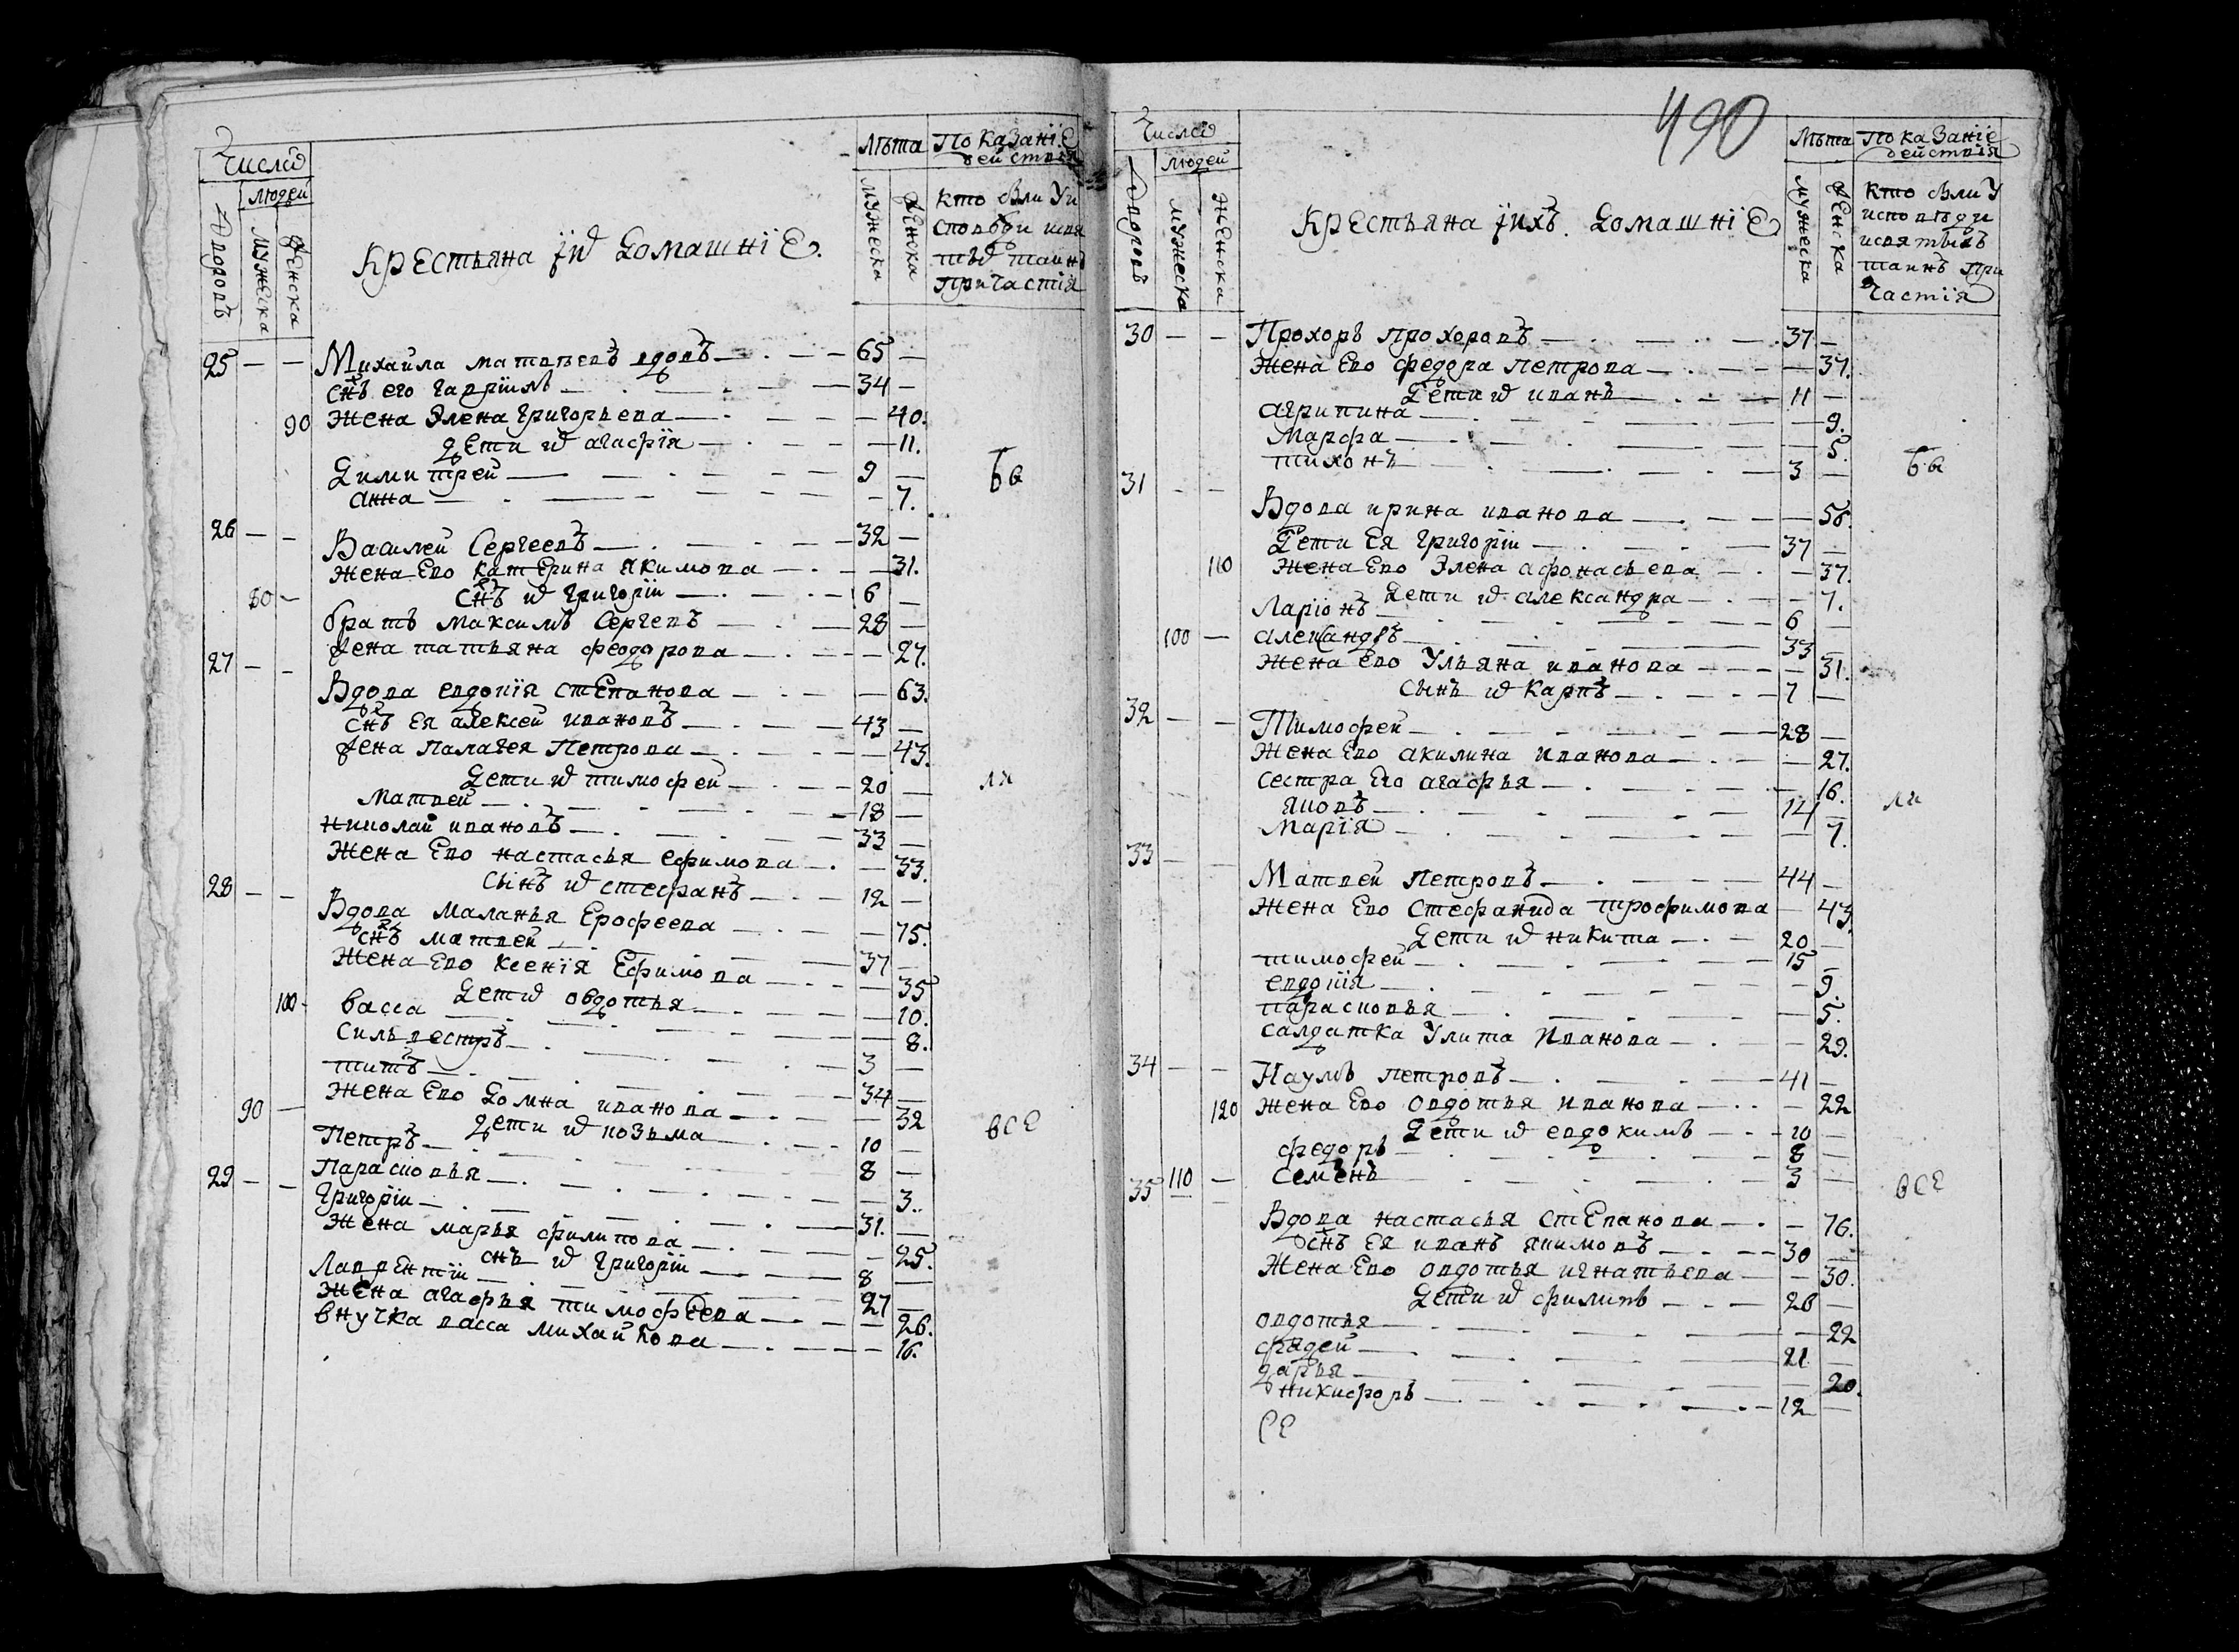 Числа
Людей
Дворовъ
мужеска
женска
Крестьяна ïихъ Домашнïе.
Лѣта
мужеска
женска
Показанïе
действïя
кто были У и
споведи исвя
тыхъ таинъ
причастïя
25 — — Михайла матвѣевъ вдовъ — 65 —
снъ его гаврïилъ — 34 —
90 Жена Элена григорьева — — 40.
дети ихъ агафïя — — 11.
Димитрей — 9 —
анна — — 7.
бы
26 — — Василей Сергеевъ — 32 —
Жена Ево катерина якимова — — 31.
80 — снъ ихъ григорïи — 6 —
братъ максимъ Сергевъ — 28 —
жена татьяна феодорова — — 27.
27 — — Вдова евдокïя степанова — — 63.
снъ ея алексей ивановъ — 43 —
жена палагея Петрова — — 43.
Дети ихъ тимофей — 20 —
матвей — 18 —
николай ивановъ — 33 —
Жена Ево настасья ефимова — — 33.
сынъ ихъ стефанъ — 12 —
ли
28 — — Вдова маланья Ерофеева — — 75.
снъ матвей — 37 —
Жена Ево ксенïя Ефимова — — 35
Дети ихъ овдотья — — 10.
100 васса — — 8.
сильвестръ — 3 —
титъ — 34 —
Жена Ево Домна иванова — — 32
90 — дети ихъ козьма — 10 —
Петръ — 8 —
Парасковья — — 3.
все
29 — — григорïи — 31. —
Жена марья филипова — — 25.
снъ ихъ григорïи — 8 —
Лаврентïи — 27 —
Жена агафья тимофеева — — 26.
внучка васса михайлова — — 16.
490
Числа
людей
Дворовъ
мужеска
женска
Крестьяна ïихъ. Домашнïе
Лѣта
мужеска
женска
Показанïе
действïя
кто были У
исповѣди
исвятыхъ
таинъ при
частïя
30 — — Прохоръ прохоровъ — 37 —
Жена Ево федора петрова — — 37.
Дети ихъ иванъ — 11 —
агрипина — — 9.
Марфа — — 5.
тихонъ — 3 —
бы
31 — — Вдова ирина иванова — — 56.
Дети Ея григорïи — 37 —
110 Жена Ево Элена афонасьева — — 37.
Дети ихъ александра — — 7.
Ларïонъ — 6 —
100 — александръ — 33 —
Жена Ево Ульяна иванова — — 31.
сынъ ихъ карпъ — 7 —
32 — — Тимофей — 28 —
Жена Ево акилина иванова — — 27.
сестра Его агафья — — 16.
яковъ — 14 —
Марïя — — 7.
ли
33 — — Матвей петровъ — 44 —
Жена Ево стефанида трофимова — — 43.
Дети ихъ никита — 20 —
тимофей — 15 —
евдокïя — — 9.
парасковья — — 5.
салдатка Улита иванова — — 29.
34 — — Наумъ петровъ — 41 —
120 Жена Ево овдотья иванова — — 22
Дети ихъ евдокимъ — 10 —
федоръ — 8 —
110 — семенъ — 3 —
все
35 Вдова настасья степанова — — 76.
снъ ея иванъ якимовъ — 30 —
Жена Ево овдотья игнатьева — — 30.
Дети ихъ филипъ — 26 —
овдотья — — 22
фадей — 21 —
дарья — — 20.
никифоръ — 12 —
се